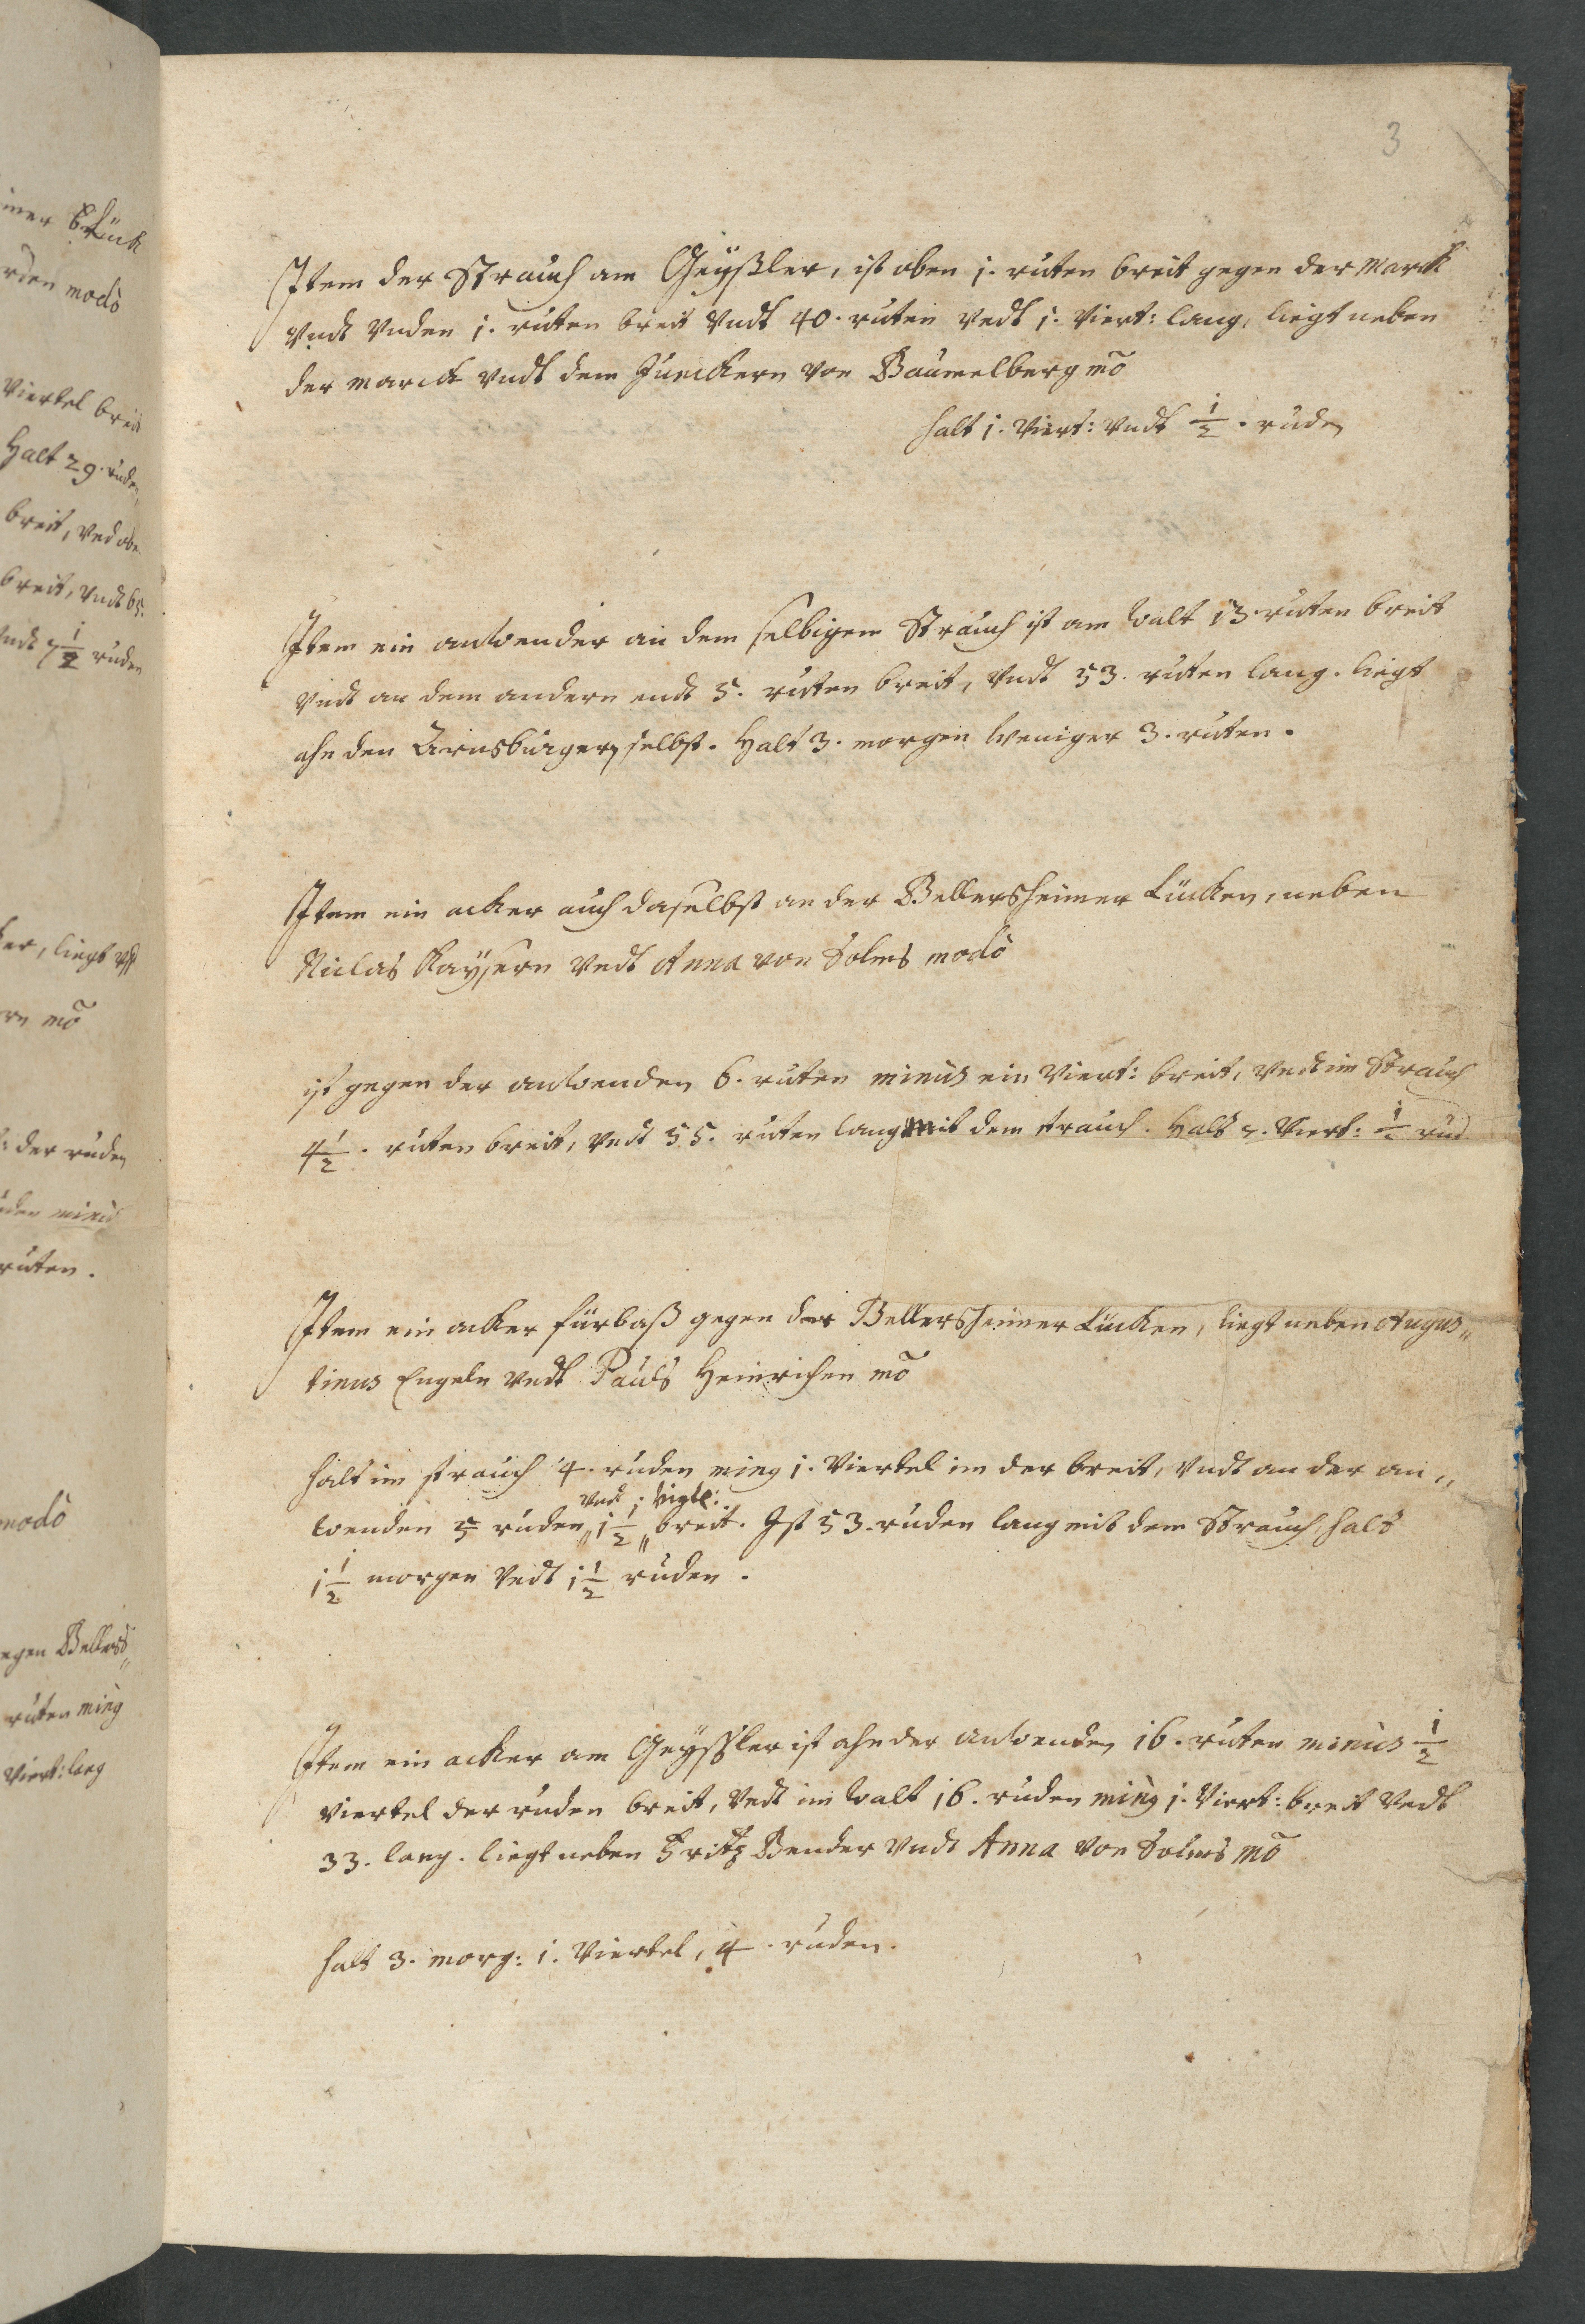 3
Item der Strauch am Geyßler, ist oben 1. ruten breit gegen der Marck
Vndt Vnden 1. ruten breit Vndt 40. ruten Vndt 1. Viert: lang, liegt neben
der Marck Vndt dem Junckern von Baumelberg mõ
halt 1. Viert: Vndt 1/2. ruden
Item ein anwender an dem selbigem Strauch ist am walt 13 ruten breit
Vndt an dem andern endt 5. ruten breit, Vndt 53. ruten lang. liegt
ahn den Arnsburgern selbst. Halt 3. morgen weniger 3. ruten.
Item ein acker auch daselbst an der Bellersheimer Lücken, neben
Niclas Kaysern Vndt Anna von Solms modò
ist gegen der anwenden 6. ruten minus ein Viert: breit, Vndt im Strauch
4 1/2. ruten breit, Vndt 55. ruten lang mit dem strauch. Halt 7. Viert: 1/2 rud
Item ein acker fürbaß gegen der Bellersheimer Lücken, liegt neben Augus„
tinus Engeln Vndt Pauls Heinrichen mõ
halt im strauch 4. ruden ming 1. Viertel im der breit, Vndt an der an„
Vndt 1 Viertl:
wenden 5 ruden„ 1 1/2 „breit. Ist 53. ruden lang mit dem Strauch, halt
1 1/2 morgen Vndt 1 1/2 ruden.
Item ein acker am Geyßler ist ahn der anwenden 16. ruten minus 1/2
Viertel der ruden breit, Vndt im walt 16. ruden ming 1. Viert: breit Vndt
33. lang. liegt neben Fritz Bender Vndt Anna von Solms mõ
halt 3. morg: 1. Viertel, 4. ruden.
modò
Viertel breit
Halt 29. ruden
breit, Vnd oben
breit, Vndt 65.
Vndt 7 1/2 ruden
liegt
mõ
der ruden
minus
ruten.
modò
ruten ming
Viert: lang